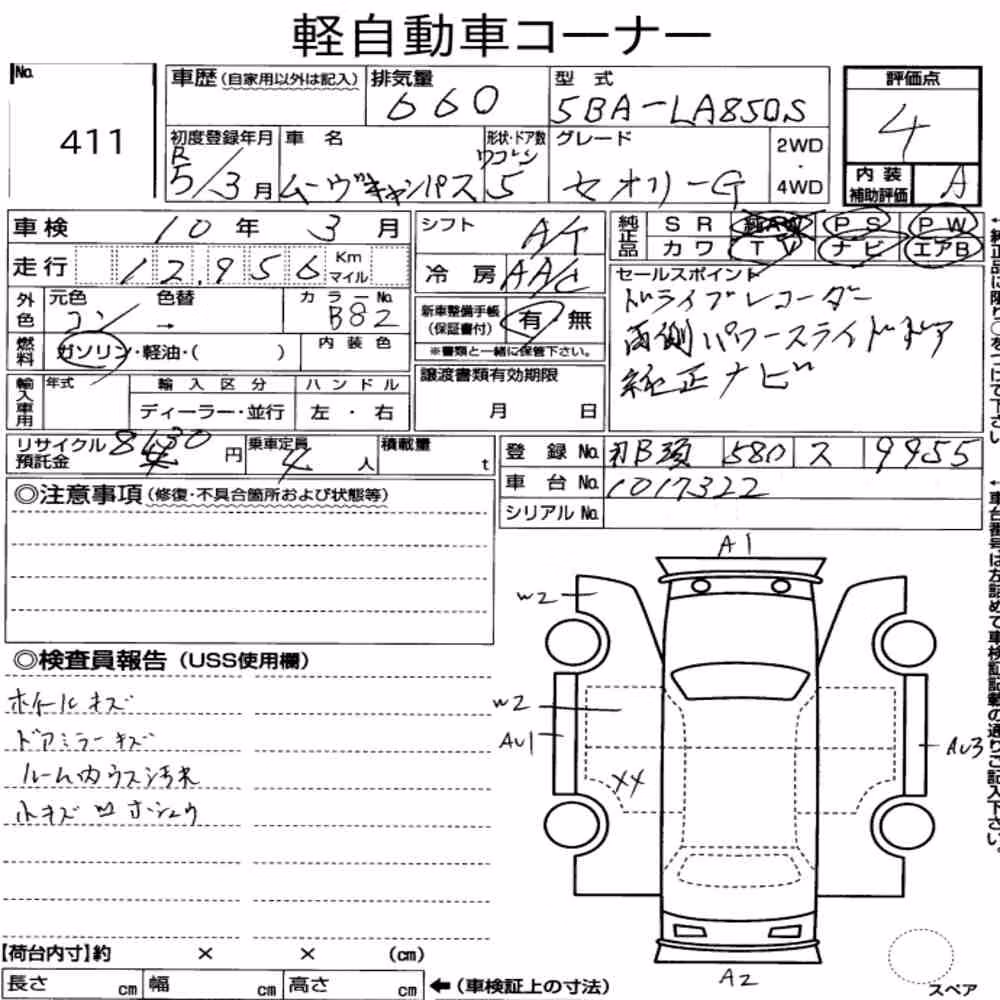 軽自動車コーナー
No.
411
車歴(自家用以外は記入)
排気量
660
型式
5BA-LA850S
評価点
4
内装補助評価
A
初度登録年月
R
5/3月
車名
ムーヴキャンバス
形状・ドア数
ワゴン
5
グレード
セオリーG
2WD
・
4WD
車検
10年 3月
シフト
A/T
純正品
SR 純AW PS PW
カワ TV ナビ エアB
走行
12,956
Km
マイル
冷房
AAC
セールスポイント
ドライブレコーダー
両側パワースライドドア
純正ナビ
外色
元色
コン
色替
→
カラーNo.
B82
新車整備手帳
(保証書付)
有・無
※書類と一緒に保管下さい。
燃料
ガソリン・軽油・( )
内装色
輸入車用
年式
輸入区分
ディーラー・並行
ハンドル
左・右
譲渡書類有効期限
月 日
リサイクル預託金
円
乗車定員
4人
積載量
t
登録No.
580 ス 9955
車台No.
1017322
シリアルNo.
◎注意事項(修復・不具合箇所および状態等)
◎検査員報告(USS使用欄)
ホイールキズ
ドアミラーキズ
ルーム内ウス汚れ
小キズ凹ホシュウ
A1
W2
W2
AU1
AU3
XX
A2
スペア
【荷台内寸】約 × × (cm)
長さ cm
幅 cm
高さ cm
←(車検証上の寸法)
↑純正品に限り○をつけて下さい
↑車台番号は左詰めで車検証記載の通りご記入下さい。